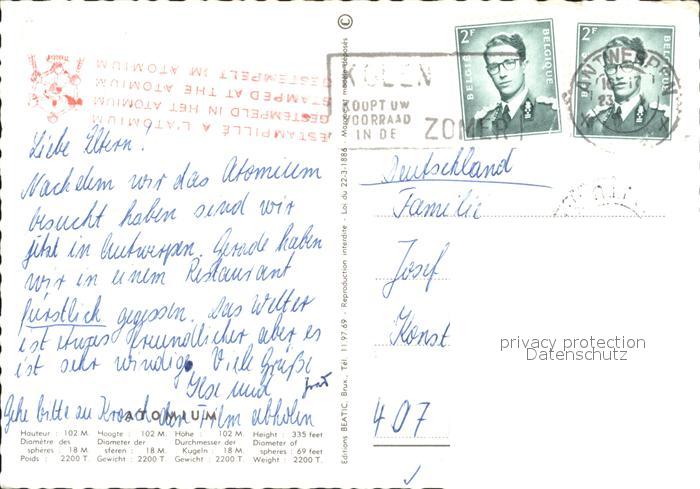 ©
2F
BELGIË
BELGIQUE
2F
BELGIË
ANTWERPEN
KOLEN
KOOPT UW
VOORRAAD
IN DE ZOMER !
ESTAMPILLÉ A L'ATOMIUM
GESTEMPELD IN HET ATOMIUM
STAMPED AT THE ATOMIUM
GESTEMPELT IM ATOMIUM
Liebe Eltern.
Nachdem wir das Atomium
besucht haben send wir
jetzt in Antwerpen. Gerade haben
wir in einem Restaurant
fürstlich gegessen. Das Wetter
ist etwas freundlicher aber es
ist sehr windig. Viele Grüße
Ilse und
Gehe bitte zu Krosch den Film abholen
ATOMIUM
Hauteur : 102 M. Hoogte : 102 M. Höhe : 102 M. Height : 335 feet
Diamètre des Diameter der Durchmesser der Diameter of
sphères : 18 M. sferen : 18 M. Kugeln : 18 M. spheres : 69 feet
Poids : 2200 T. Gewicht : 2200 T. Gewicht : 2200 T. Weight : 2200 T.
Editions BEATIC, Brux., Tél. 11.97.69 - Reproduction interdite - Loi du 22-3-1886 - Marque et modèle déposés
Deutschland
Familie
Josef
Konst
407
privacy protection
Datenschutz